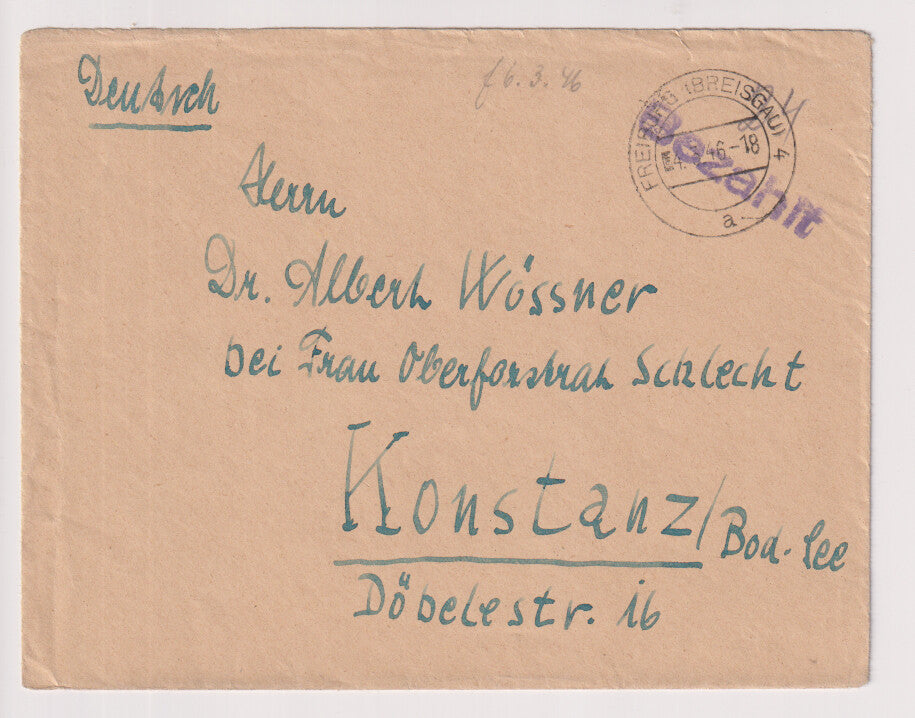 Deutsch
6.3.46
FREIBURG (BREISGAU) 4
46.-18
a
Bezahlt
Herrn
Dr. Albert Wössner
bei Frau Oberforstrat Schlecht
Konstanz/Bod-See
Döbelestr. 16